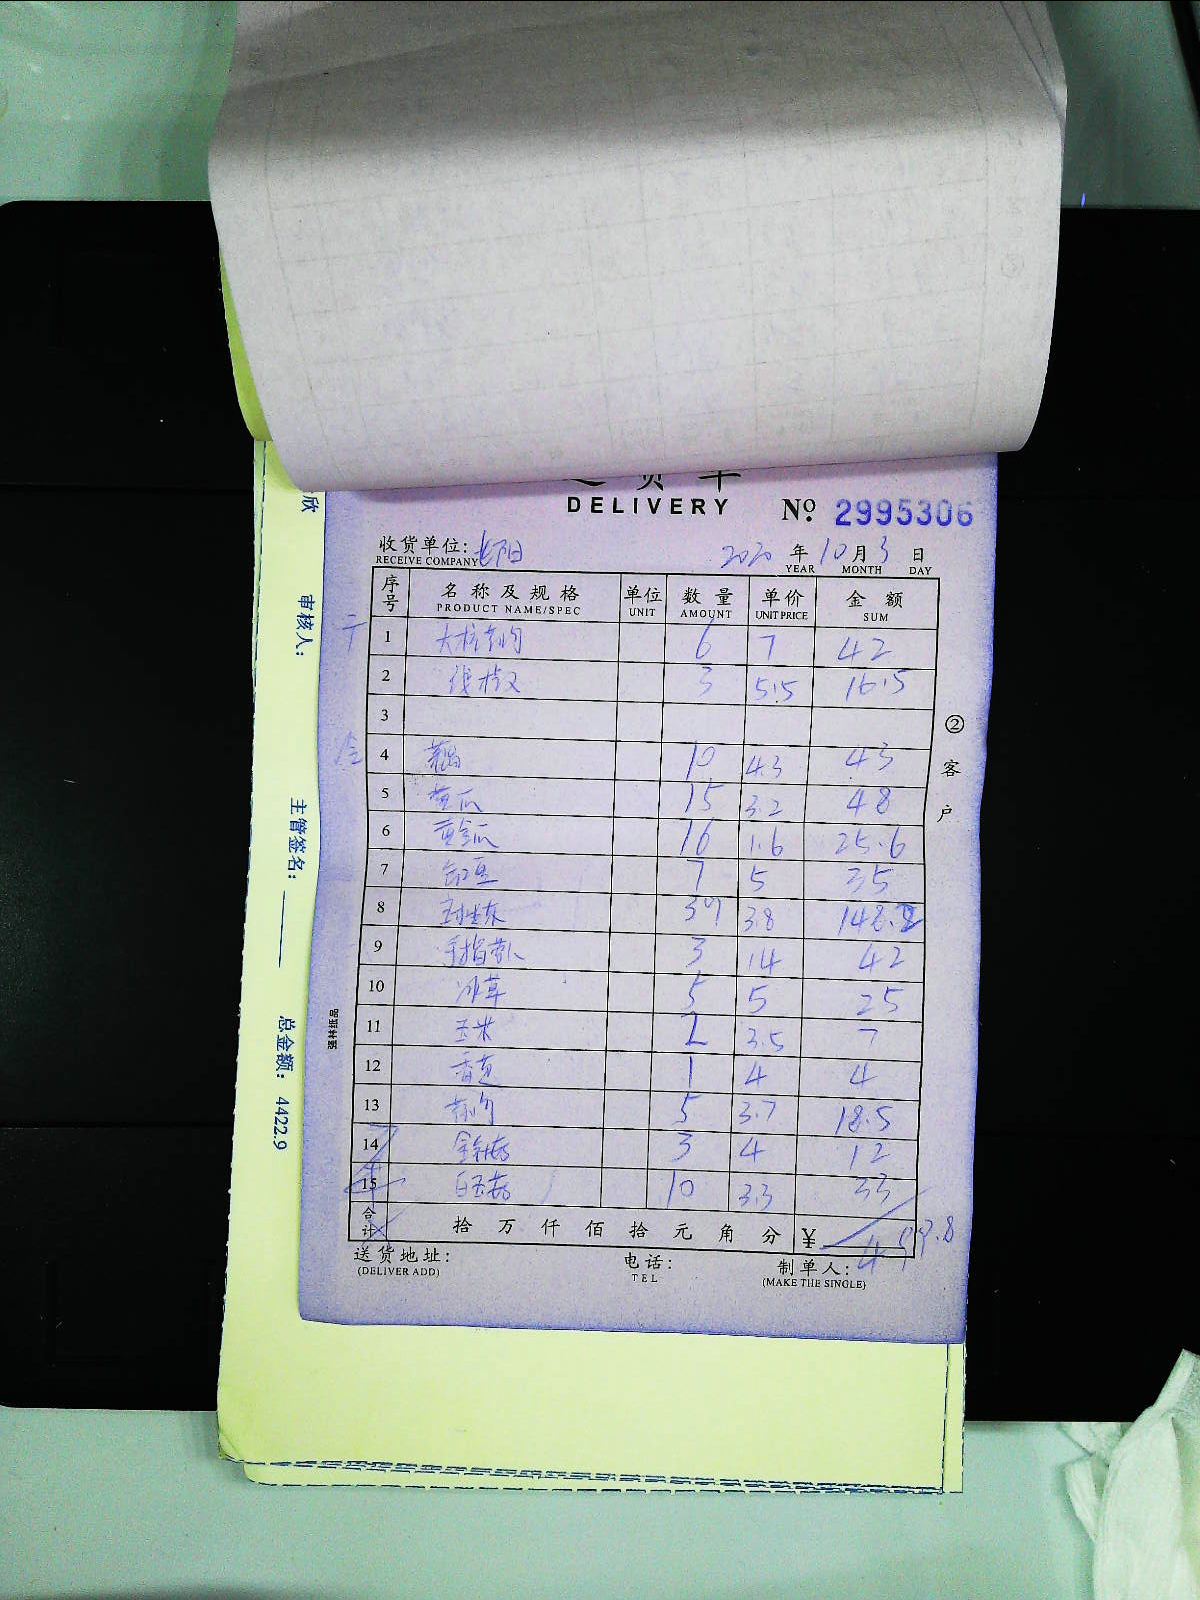 DELIVERY № 2995306
收货单位: 长阳 2020 年 10 月 3 日
RECEIVE COMPANY YEAR MONTH DAY
序号 名称及规格 单位 数量 单价 金额
PRODUCT NAME/SPEC UNIT AMOUNT UNIT PRICE SUM
1 6 7 42
2 线椒 3 5.5 16.5
3
4 10 4.3 43
5 黄瓜 15 3.2 48
6 黄金瓜 16 1.6 25.6
7 豇豆 7 5 35
8 39 3.8 148.2
9 3 14 42
10 冰草 5 5 25
11 玉米 2 3.5 7
12 香芹 1 4 4
13 5 3.7 18.5
14 金针菇 3 4 12
15 白玉菇 10 3.3 33
合计 拾 万 仟 佰 拾 元 角 分 ¥ 499.8
送货地址: 电话: 制单人:
(DELIVER ADD) TEL (MAKE THE SINGLE)
② 客户
强林纸品
欣 审核人: 主管签名: 总金额: 4422.9